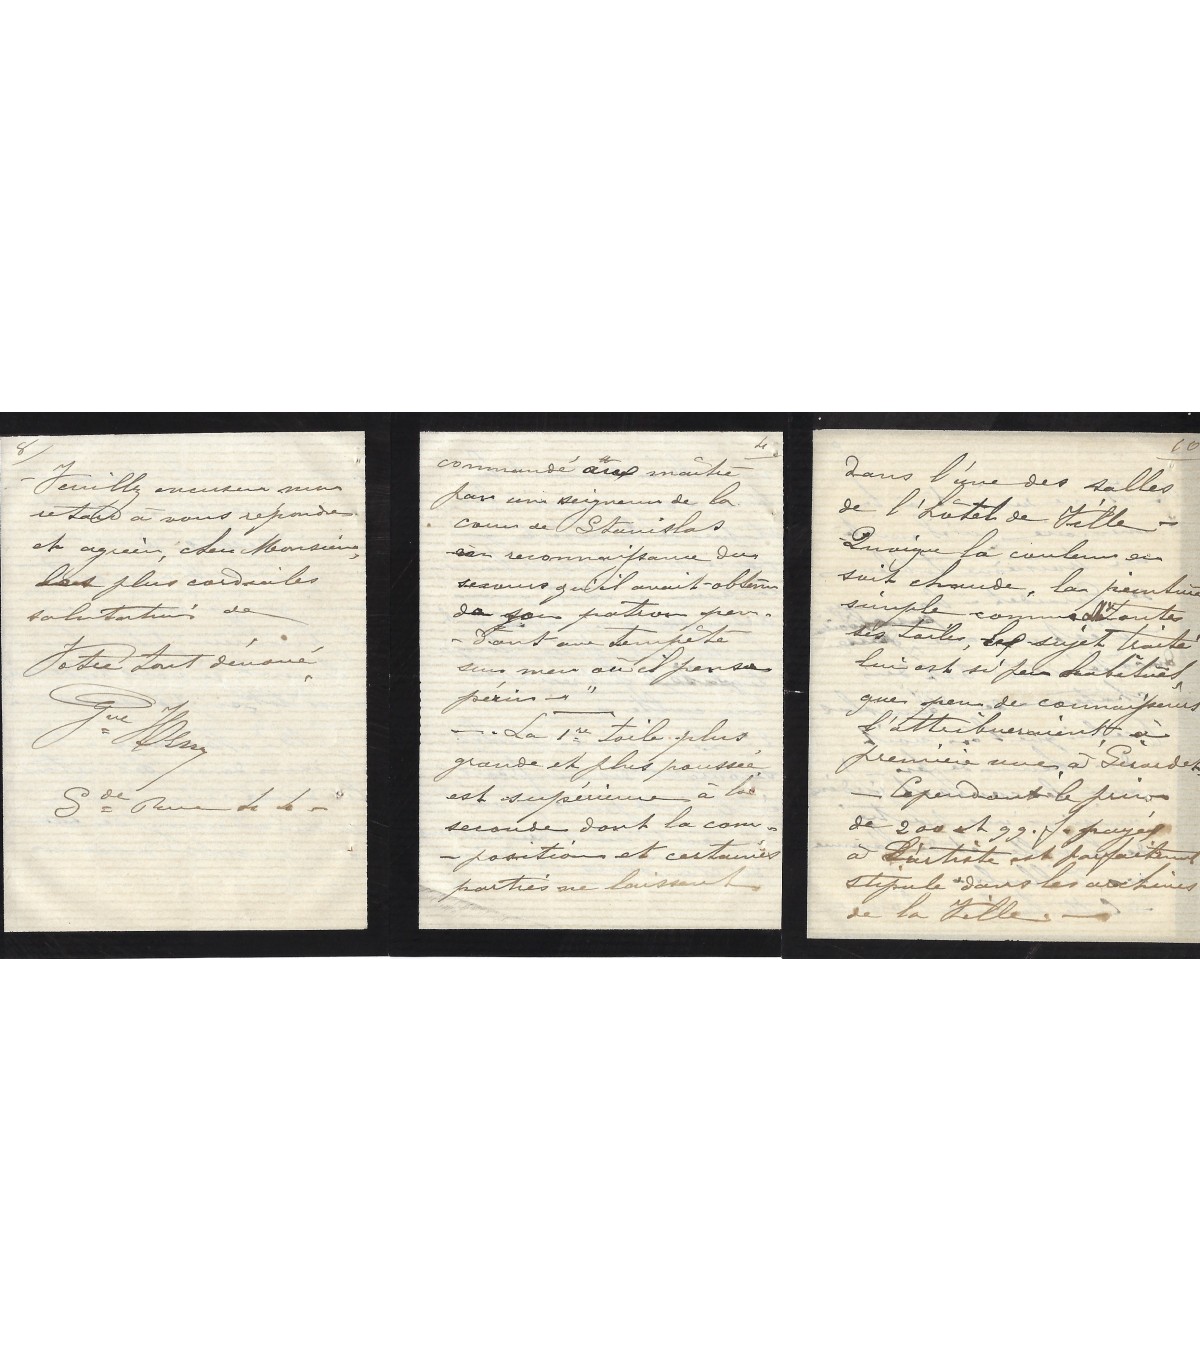 8/
Veuillez excuser mon
retard à vous répondre
et agréer, cher Monsieur,
les plus cordiales
salutations de
Votre tout dévoué
Gve
Gde Rue
4
commandé au maître
par un seigneur de la
cour de Stanislas
en reconnaissance du
secours qu'il avait obtenu
de son patron pen-
-dant une tempête
sur mer où il pensa
périr — "
— La 1re toile plus
grande et plus poussée
est supérieure à la
seconde dont la com-
-position et certaines
parties ne laissent
6
dans l'une des salles
de l'hôtel de Ville —
Quoique la couleur en
soit chaude, la peinture
simple comme toutes
ses toiles, le sujet traité
lui est si peu habituel
que peu de connaisseurs
l'attribueraient à
première vue à Girardet
— Cependant le prix
de 200 et 99. f. payés
à l'artiste est parfaitement
stipulé dans les archives
de la Ville. —